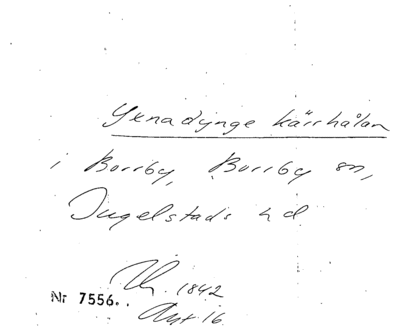 Yxnadynge kärrhålan
i Borrby, Borrby sn,
Ingelstads hd
1842
Nr 7556.
Akt 16.